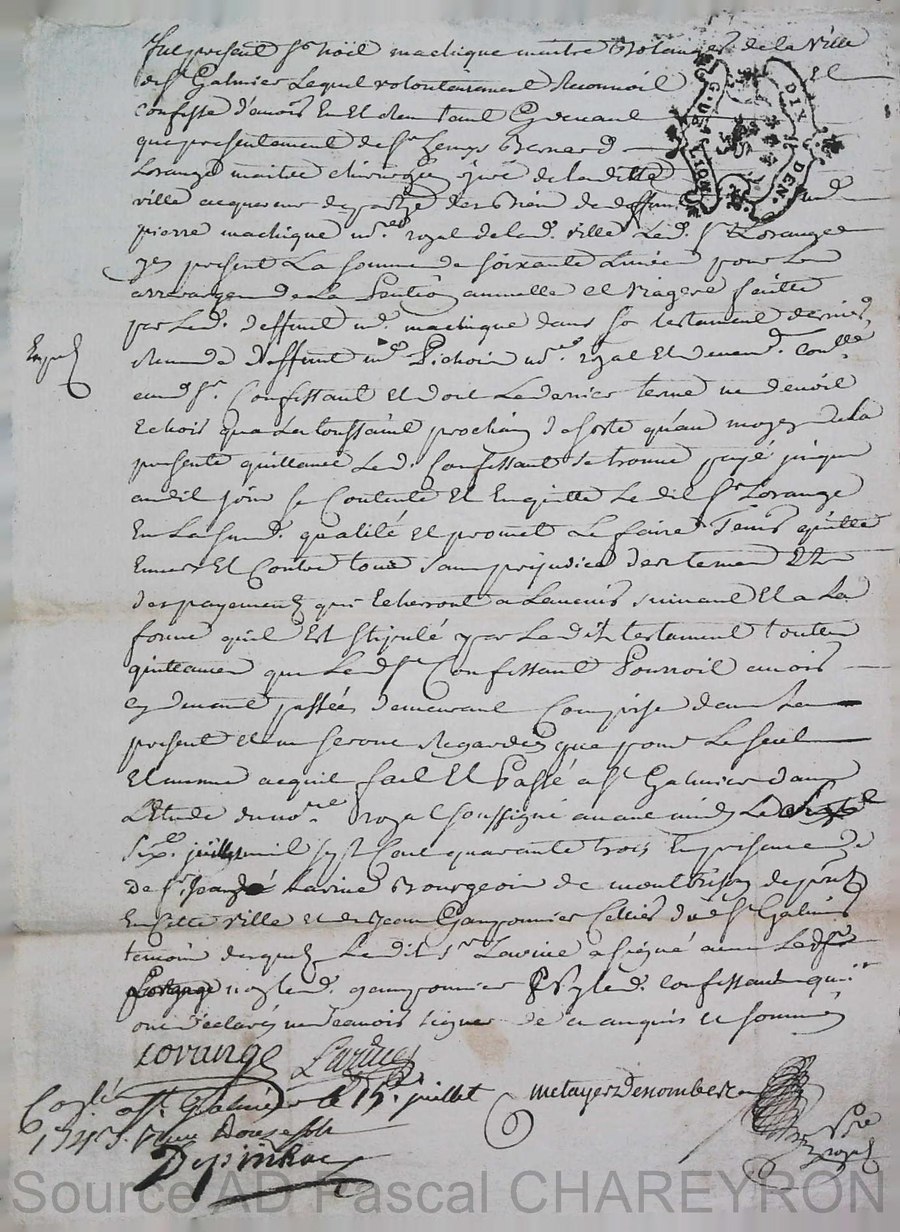 Fut present Sr Noël machique maitre Bolanger de la Ville
de St Galmier Lequel volontairement Reconnoit et
confesse d'avoir En Et Reu tant Cy devant
que presentement de Sr Bernard
Lorange maitre chirurgien juré de laditte
ville acquereur de partye des Biens de deffunt md
pierre machique nre royal de lad. ville Led. Sr Lorange
present La somme de soixante Livres pour
arrerages de La Pention annuelle et viagere faitte
par Led. deffunt md machique dans son testament dernier
Receu de Deffunt md Pichoin nre royal Et
aud Sr Confessant et dont Le dernier terme ne devoit
Echoir qua La toussaint prochain de sorte qu'au moyen de la
presente quittance Led. Confessant se trouve payé jusques
audit jour se Contente Et En quitte Le dit Sr Lorange
En La susd. qualité et promet Le faire Tenir quitte
Envers Et Contre tous sans prejudice des termes Et
des payements qui Echerront a Lavenir suivant Et a La
forme qu'il Est stipulé par Le dit testament toutes
quittances que Led Sr Confessant Pourroit avoir
cy devant passées demeurant Comprise dans La
present et ne seront Regardées que pour Le seul
Et meme acquit fait Et Passé a St Galmier dans
L'Etude du nore royal soussigné avant midy Le
Six. juillet mil sept Cent quarante trois En presence de
de Sr Lavine Bourgeois de montbrison de pnt
En cette ville et de Jean Gamponnier Cellier dud St Galmier
temoins desquels Ledit Sr Lavine a signé avec Led Sr
Lorange non led. gamponnier ny led. confessant qui
ont declarés ne scavoir signer de ce enquis et sommes
Lorange Lavine
metayer Denombre
nre royal
Conllé a St Galmier le 15. juillet
1743. Reçu Douze sols
Depinhac
Source AD Pascal CHAREYRON
G. DE LION
DIX DEN.